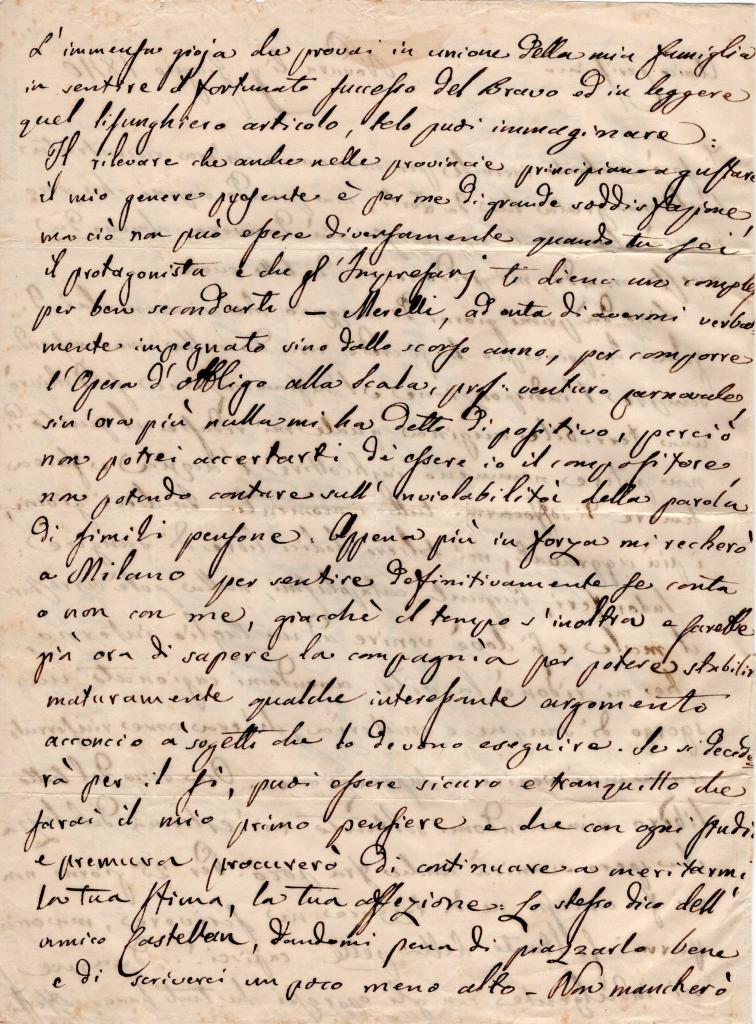 L'immensa gioja che provai in unione della mia famiglia
in sentire il fortunato successo del Bravo ed in leggere
quel lisunghiero articolo, telo puoi immaginare:
Il rilevare che anche nelle provincie principiano a gustare
il mio genere presente è per me di grande soddisfazione,
ma ciò non può essere diversamente quando tu sei
il protagonista e che gl'Impresarj ti diena un comples
per ben secondarti – Merelli, ad onta di avermi verbal
mente impegnato sino dallo scorso anno, per comporre
l'Opera d'obbligo alla Scala, pross: venturo carnovale,
sin'ora più nulla mi ha detto di positivo, perciò
non potrei accertarti di essere io il compositore,
non potendo contare sull'inviolabilità della parola
di simili persone. Appena più in forza mi recherò
a Milano per sentire definitivamente se conta
o non con me, giacchè il tempo s'inoltra e sarebbe
già ora di sapere la compagnia per potere stabilir
maturamente qualche interessante argomento
acconcio a' sogetti che lo devono eseguire. Se si decide
rà per il sì, puoi essere sicuro e tranquillo che
sarai il mio primo pensiere e che con ogni studi
e premura procurerò di continuare a meritarmi
la tua stima, la tua affezione: Lo stesso dico dell'
amico Castellan, dandomi pena di piazzarlo bene
e di scriverci un poco meno alto – Non mancherò